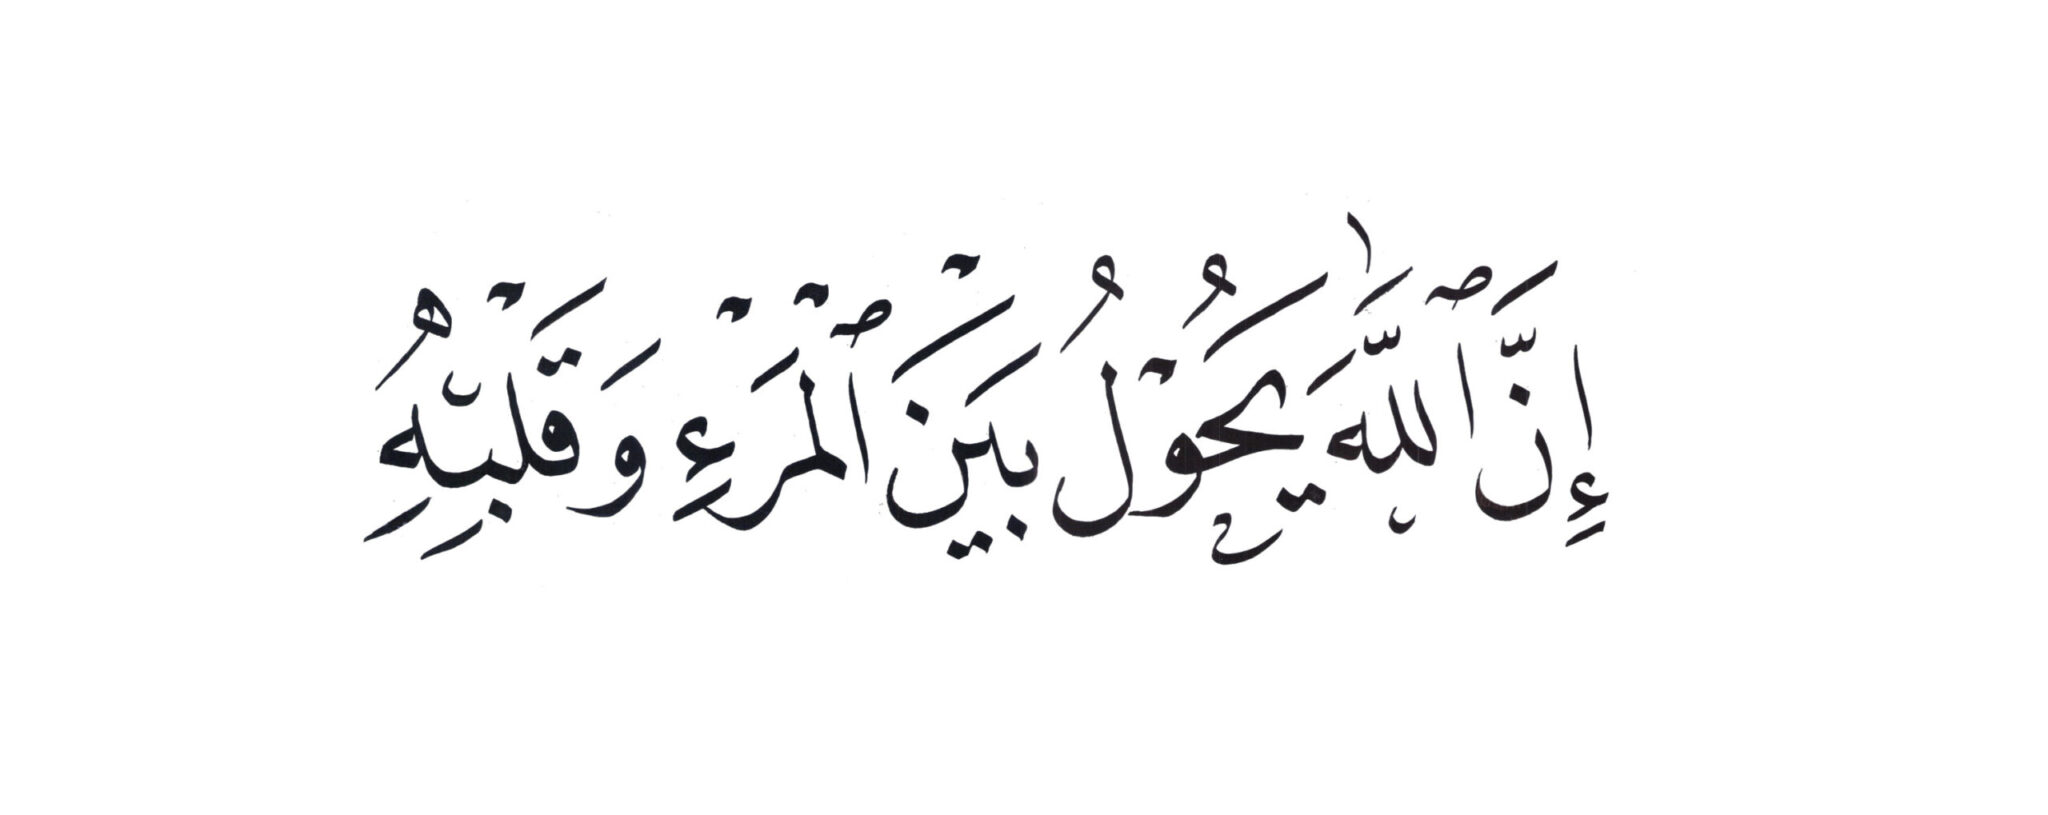 إِنَّ ٱللَّهَ يَحُوْلُ بَيْنَ ٱلْمَرْءِ وَقَلْبِهِ